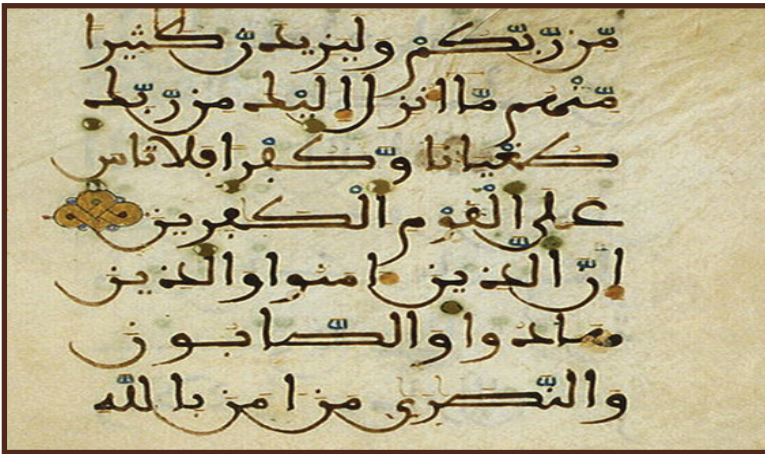 مّن رّبّكمْ وليزيدنّ كثيرا
مّنْهم مّا انزل اليْك من رّبّك
طغْيانا وّكفْرا فلا تاس
على الْقوْم الْكفرين
انّ الّذين امنوا والذين
هادوا والصّابون
والنّصرى من امن باللّه